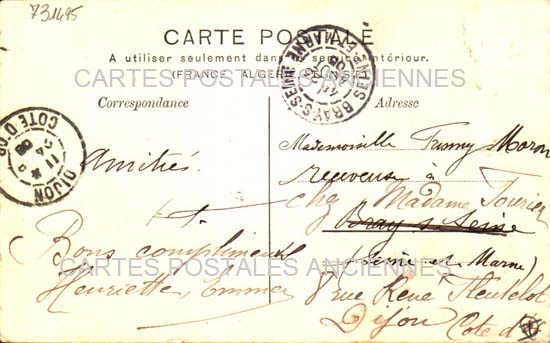 731495
CARTE POSTALE
A utiliser seulement dans le service intérieur.
(FRANCE, ALGÉRIE, TUNISIE)
CARTES POSTALES ANCIENNES
Correspondance
Adresse
BRAY-S-SEINE
SEINE ET MARNE
DIJON
COTE D'OR
Amitiés.
Bons compliments
Henriette, Emma
Mademoiselle Moron
receveuse à
chez Madame
Bray s Seine
(Seine et Marne)
CARTES POSTALES ANCIENNES
8 rue René Fleutelot
Dijon Cote d'O